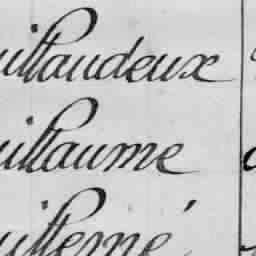 uillaudeux
uillaume
uillemé